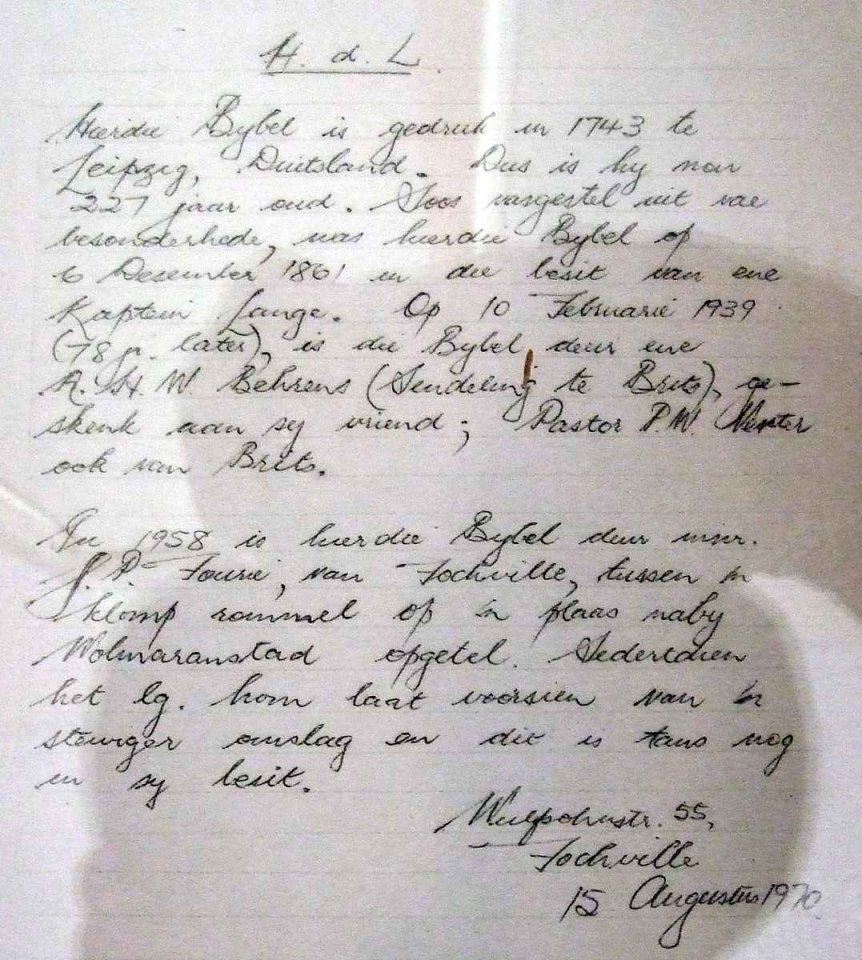 H. d. L.
Hierdie Bybel is gedruk in 1743 te
Leipzig, Duitsland. Dus is hy nou
227 jaar oud. Soos vasgestel uit vae
besonderhede, was hierdie Bybel op
6 Desember 1861 in die besit van ene
Kaptein Lange. Op 10 Februarie 1939
(78 j. later), is die Bybel deur ene
A. H. W. Behrens (Sendeling te Brits), ge-
skenk aan sy vriend; Pastor P.W. Venter
ook van Brits.
In 1958 is hierdie Bybel deur mnr.
J. P. Fourie, van Fochville, tussen 'n
klomp rommel op 'n plaas naby
Wolmaranstad opgetel. Sedertdien
het lg. hom laat voorsien van 'n
stewiger omslag en dit is tans nog
in sy besit.
55,
Fochville
15 Augustus 1970.